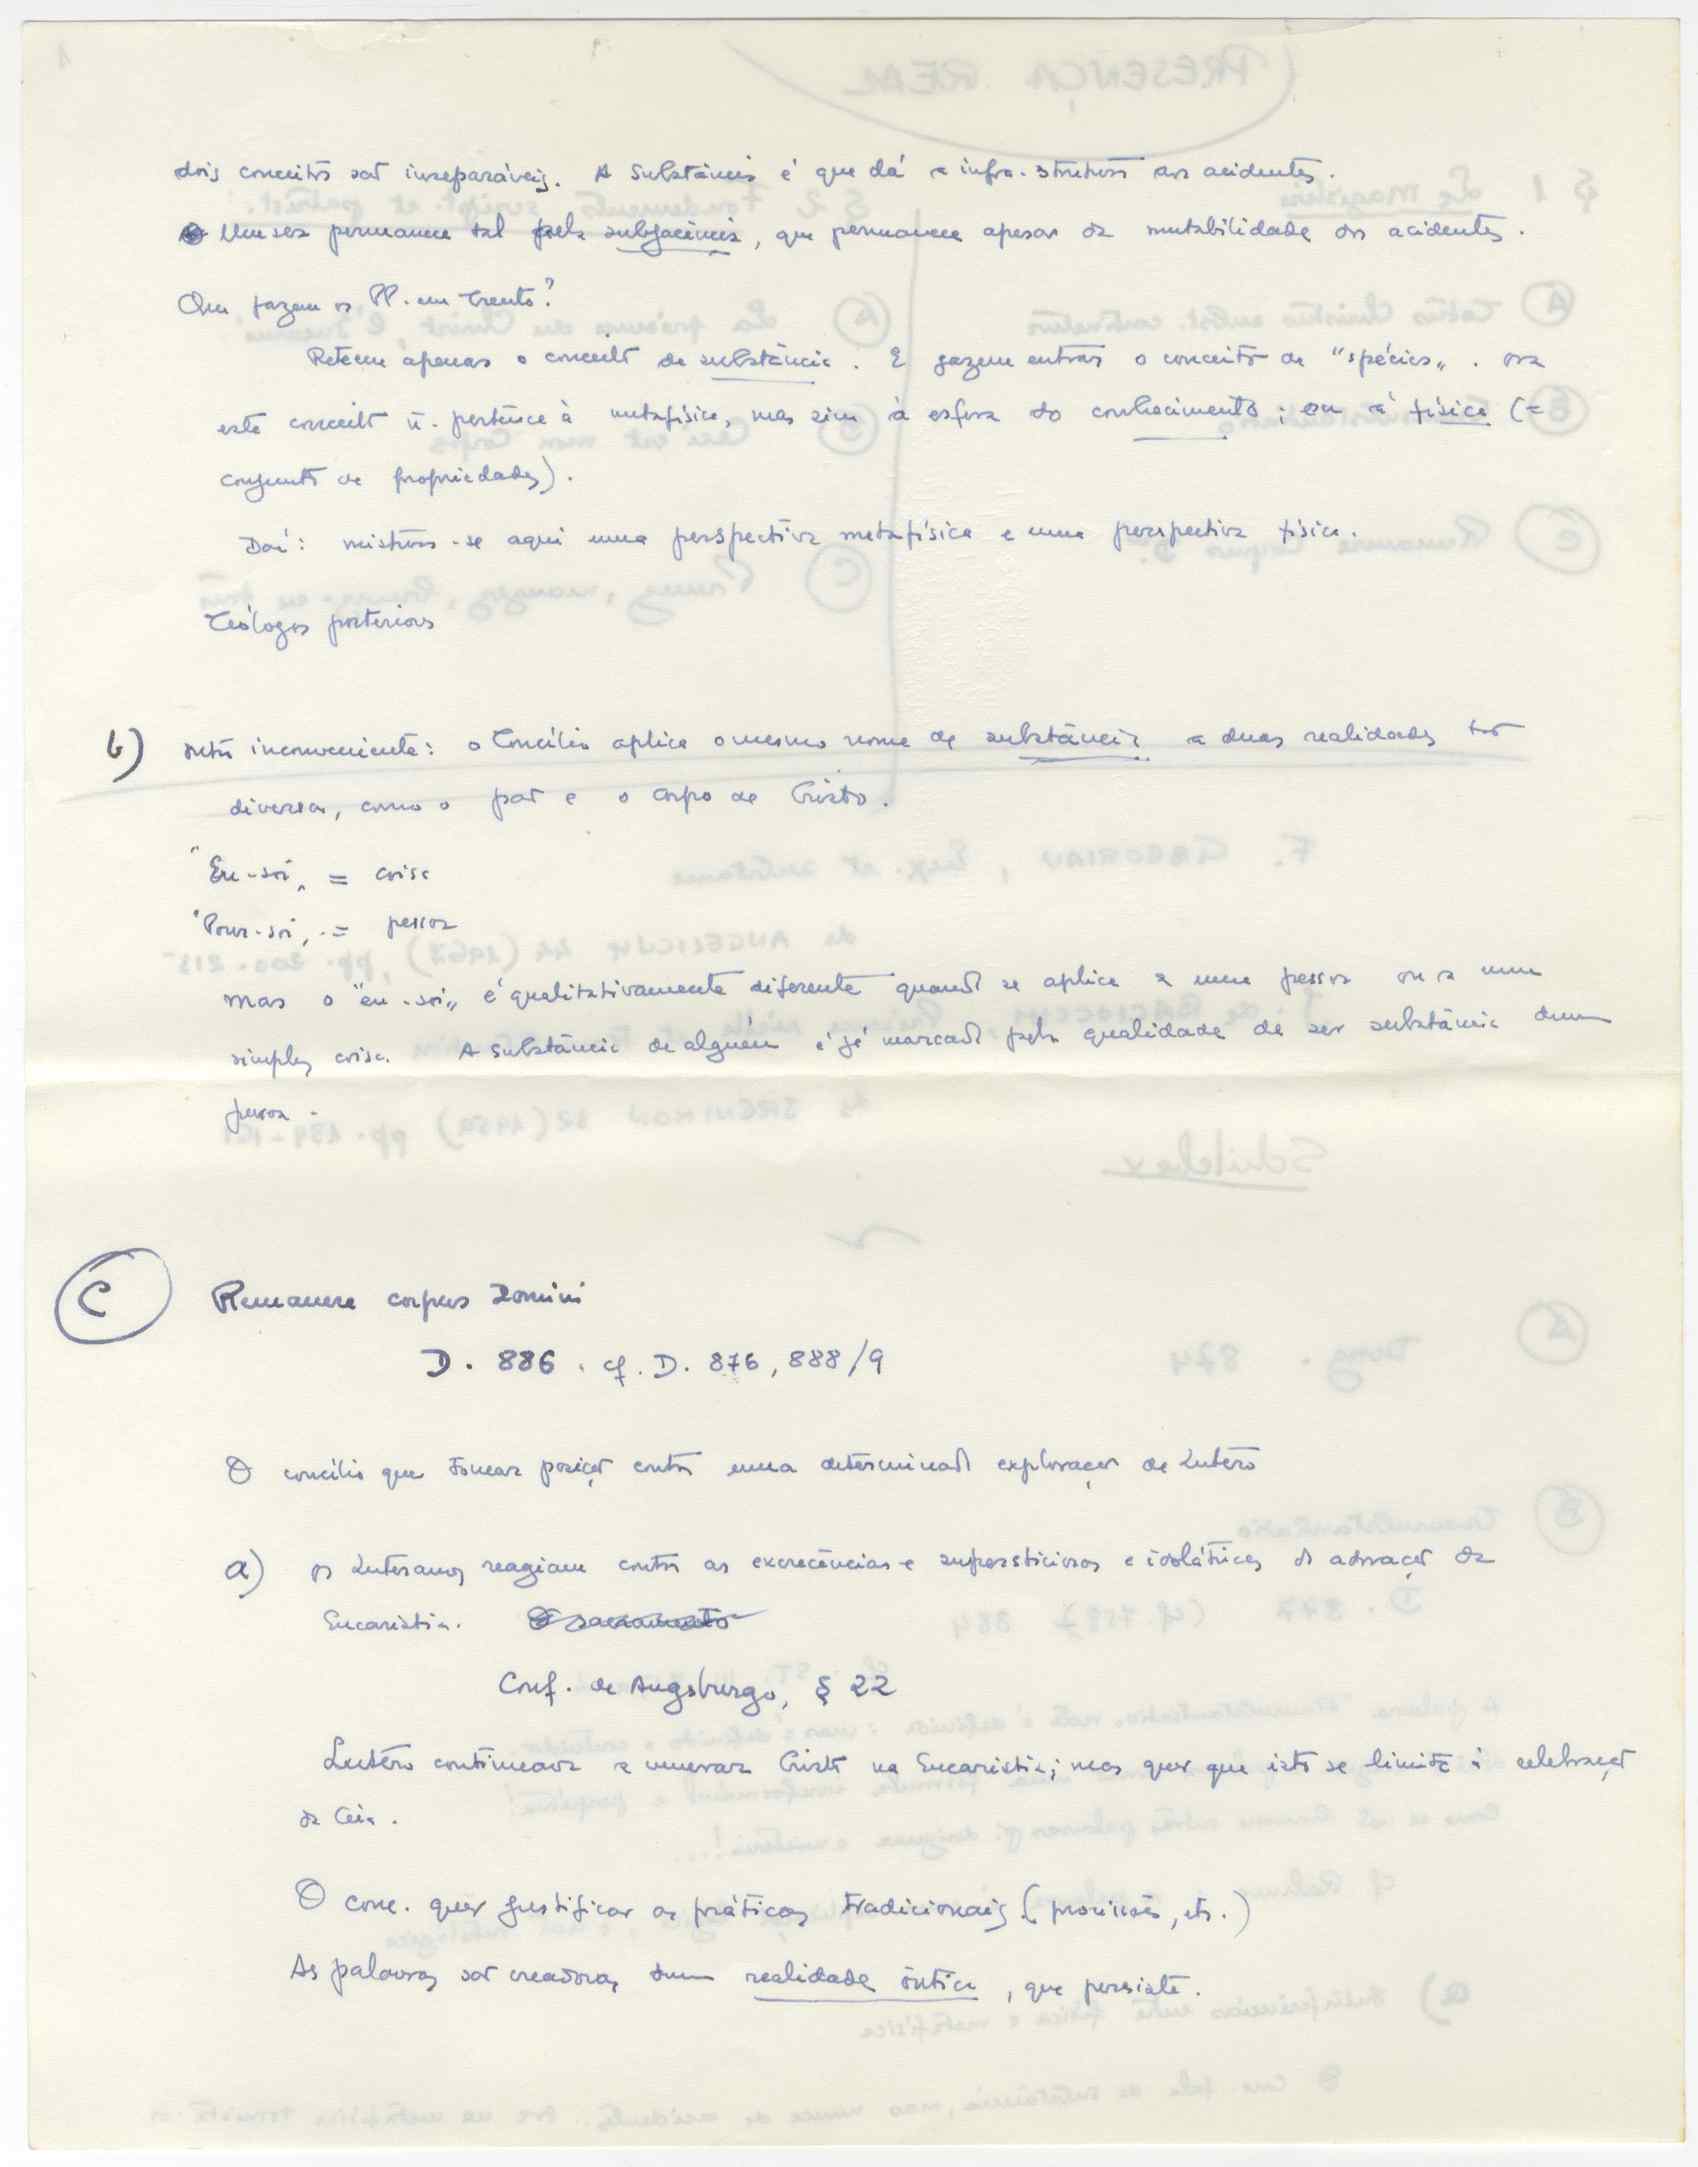 dois conceitos são inseparáveis. A substância é que dá a infra-strutura aos acidentes.
Um ser permanece tal pela subjacência, que permanece apesar da mutabilidade dos acidentes.
Que fazem os PP. em Trento?
Retêm apenas o conceito de substância. E fazem entrar o conceito de "spécies". Ora
este conceito ñ. pertence à metafísica, mas sim à esfera do conhecimento; ou à física (=
conjunto de propriedades).
Daí: mistura-se aqui uma perspectiva metafísica e uma perspectiva física.
Teólogos posteriores
b) outro inconveniente: o Concílio aplica o mesmo nome de substância a duas realidades tão
diversas, como o pão e o corpo de Cristo.
"En-soi" = coisa
"Pour-soi" = pessoa
mas o "en-soi" é qualitativamente diferente quando se aplica a uma pessoa ou a uma
simples coisa. A substância de alguém é já marcada pela qualidade de ser substância duma
pessoa.
C Remanere corpus Domini
D. 886. cf. D. 876, 888/9
O concílio quer tomar posição contra uma determinada explicação de Lutero
a) os Luteranos reagiam contra as excrecências supersticiosas e idolátricas da adoração da
Eucaristia. O sacramento
Conf. de Augsburgo, § 22
Lutero continuava a venerar Cristo na Eucaristia; mas quer que isto se limite à celebração
da Ceia.
O conc. quer justificar as práticas tradicionais (procissões, etc.)
As palavras são creadoras duma realidade ôntica, que persiste.